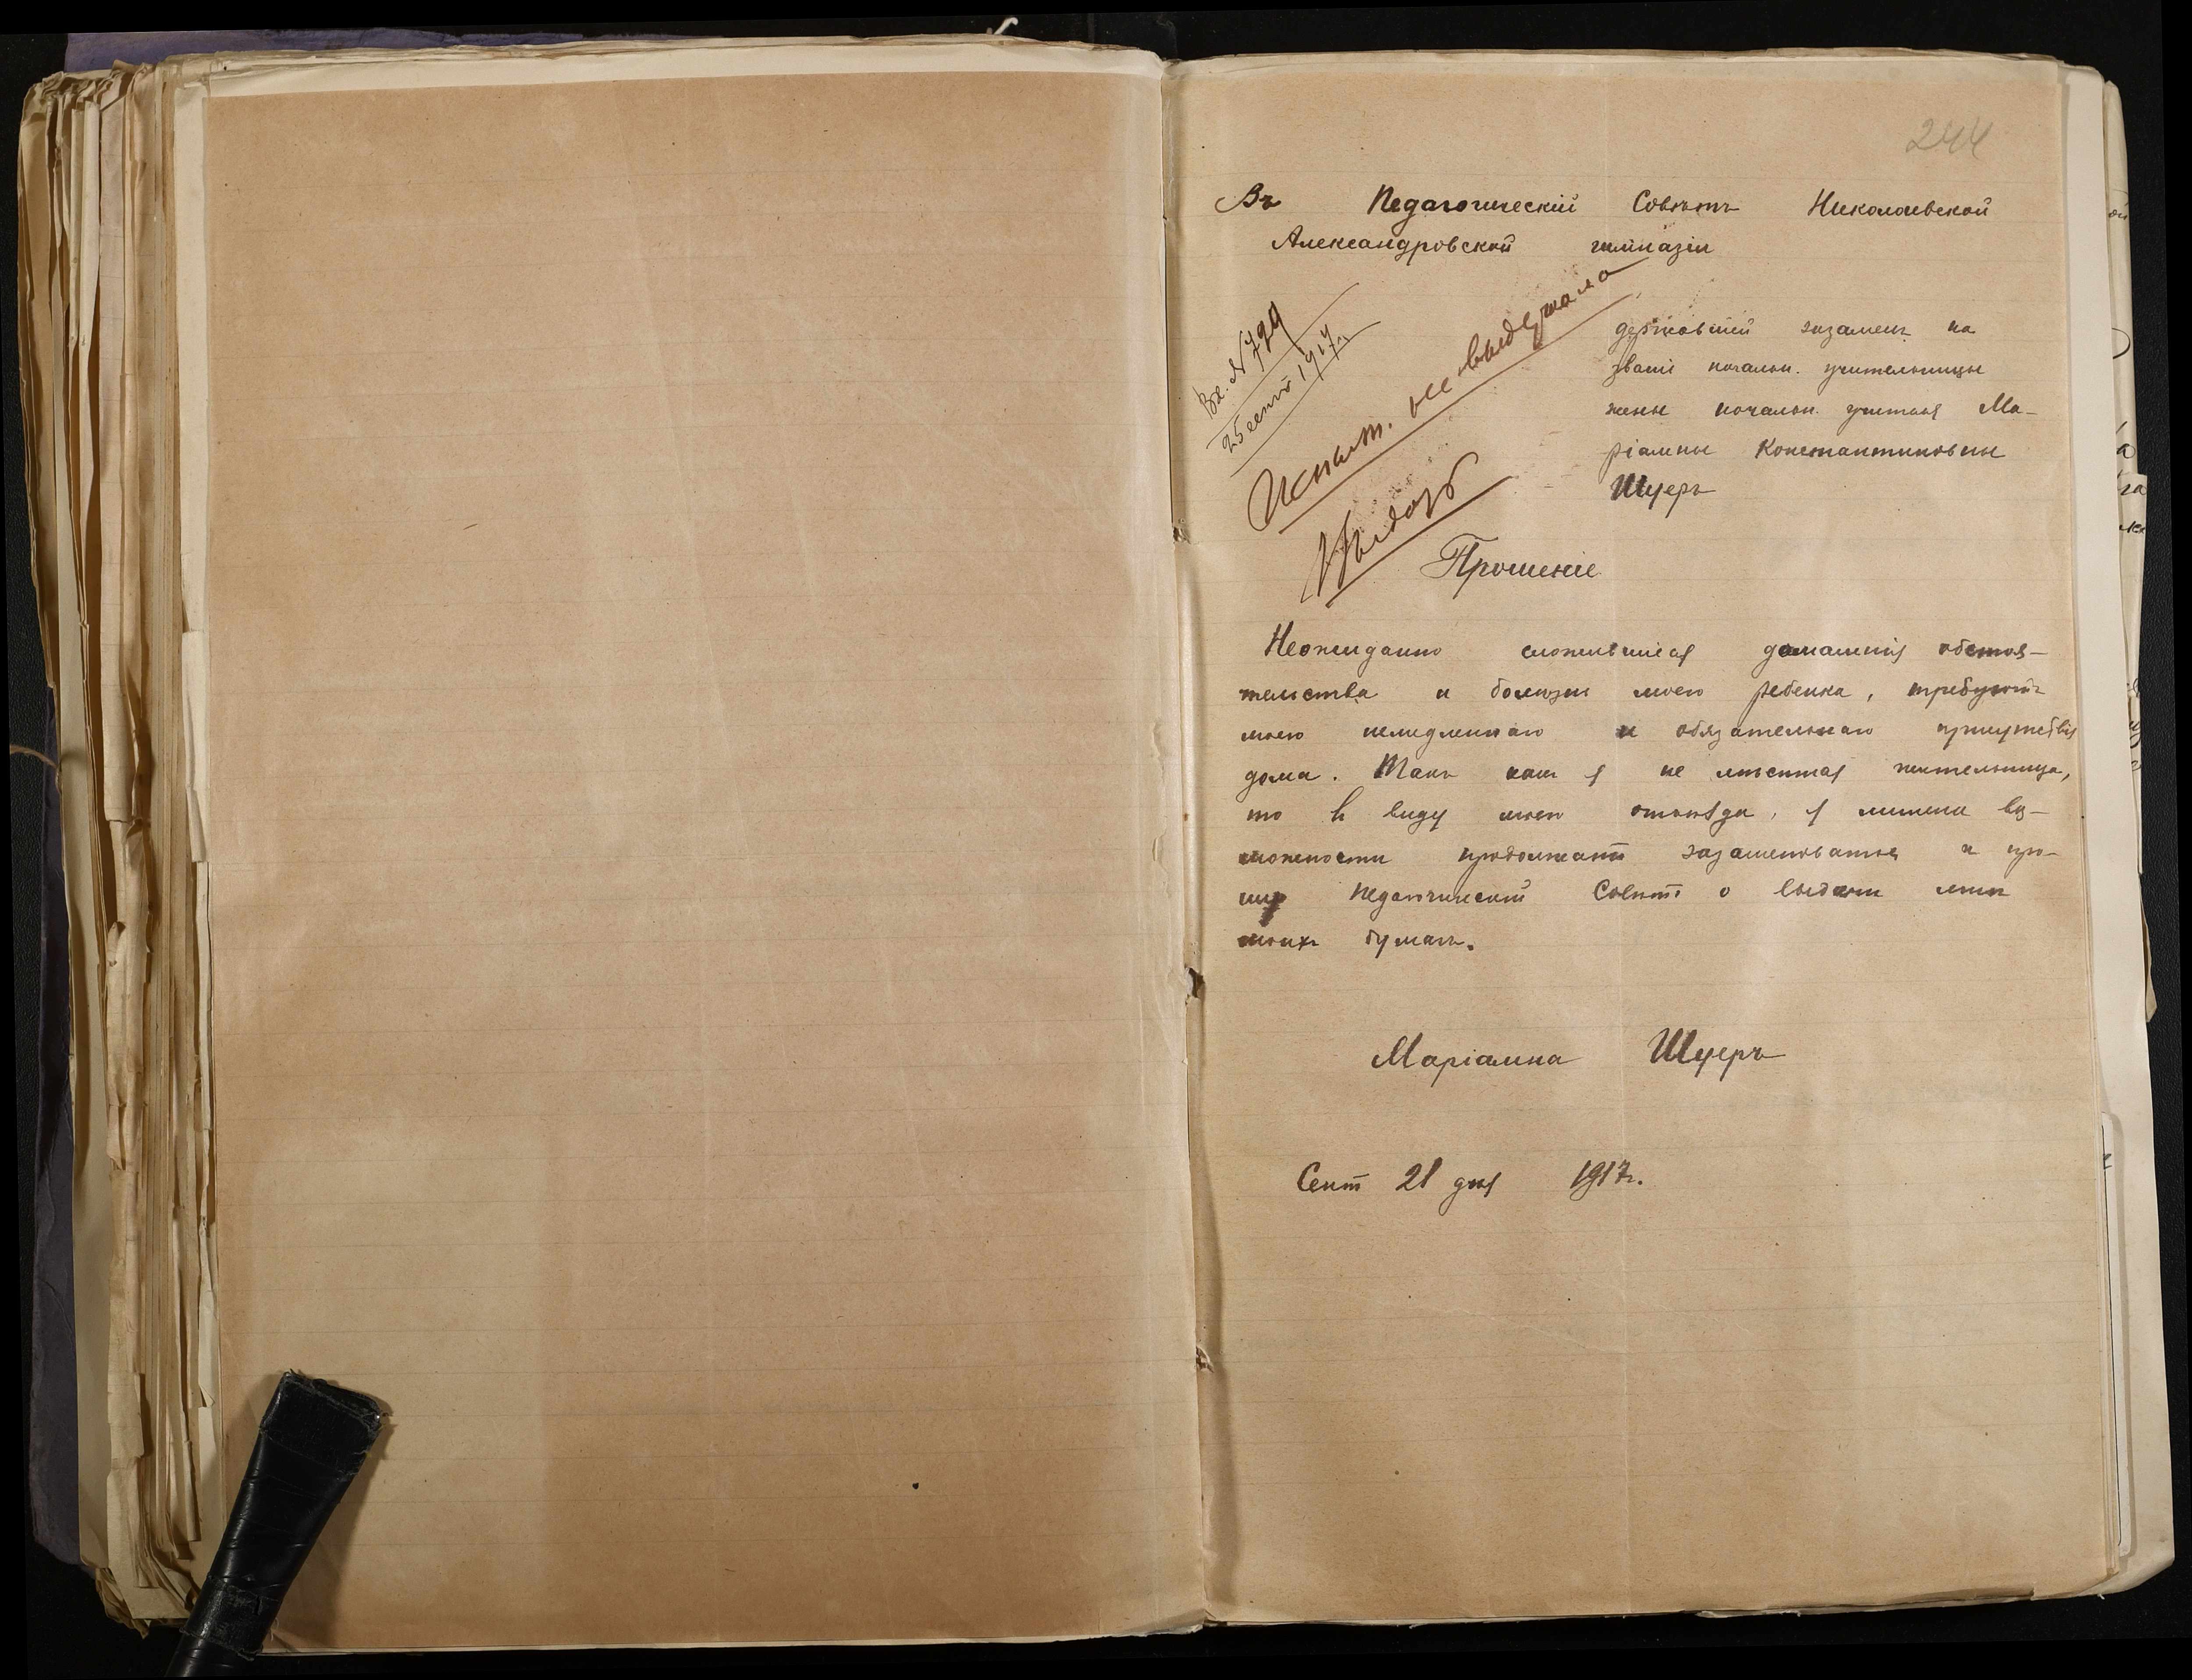 244
Въ Педагогическій Совѣтъ Николаевской
Александровской гимназіи
Вх. № 799
25 сент 1917 г.
Испыт. не выдержала
Выдать
державшей экзаменъ на
званіе началн. учительницы
жены началн. учителя Ма-
ріамны Константиновны
Шуеръ
Прошеніе
Неожиданно сложившіяся домашнія обстоя-
тельства и болѣзнь моего ребенка, требуютъ
моего немедленнаго и обязательнаго присутствія
дома. Такъ какъ я не мѣстная жительница,
то въ виду моего отъѣзда, я лишена воз-
можности продолжать экзаменоваться и про-
шу Педагогическій Совѣтъ о выдачи мнѣ
моихъ бумагъ.
Маріамна Шуеръ
Сент 21 дня 1917 г.